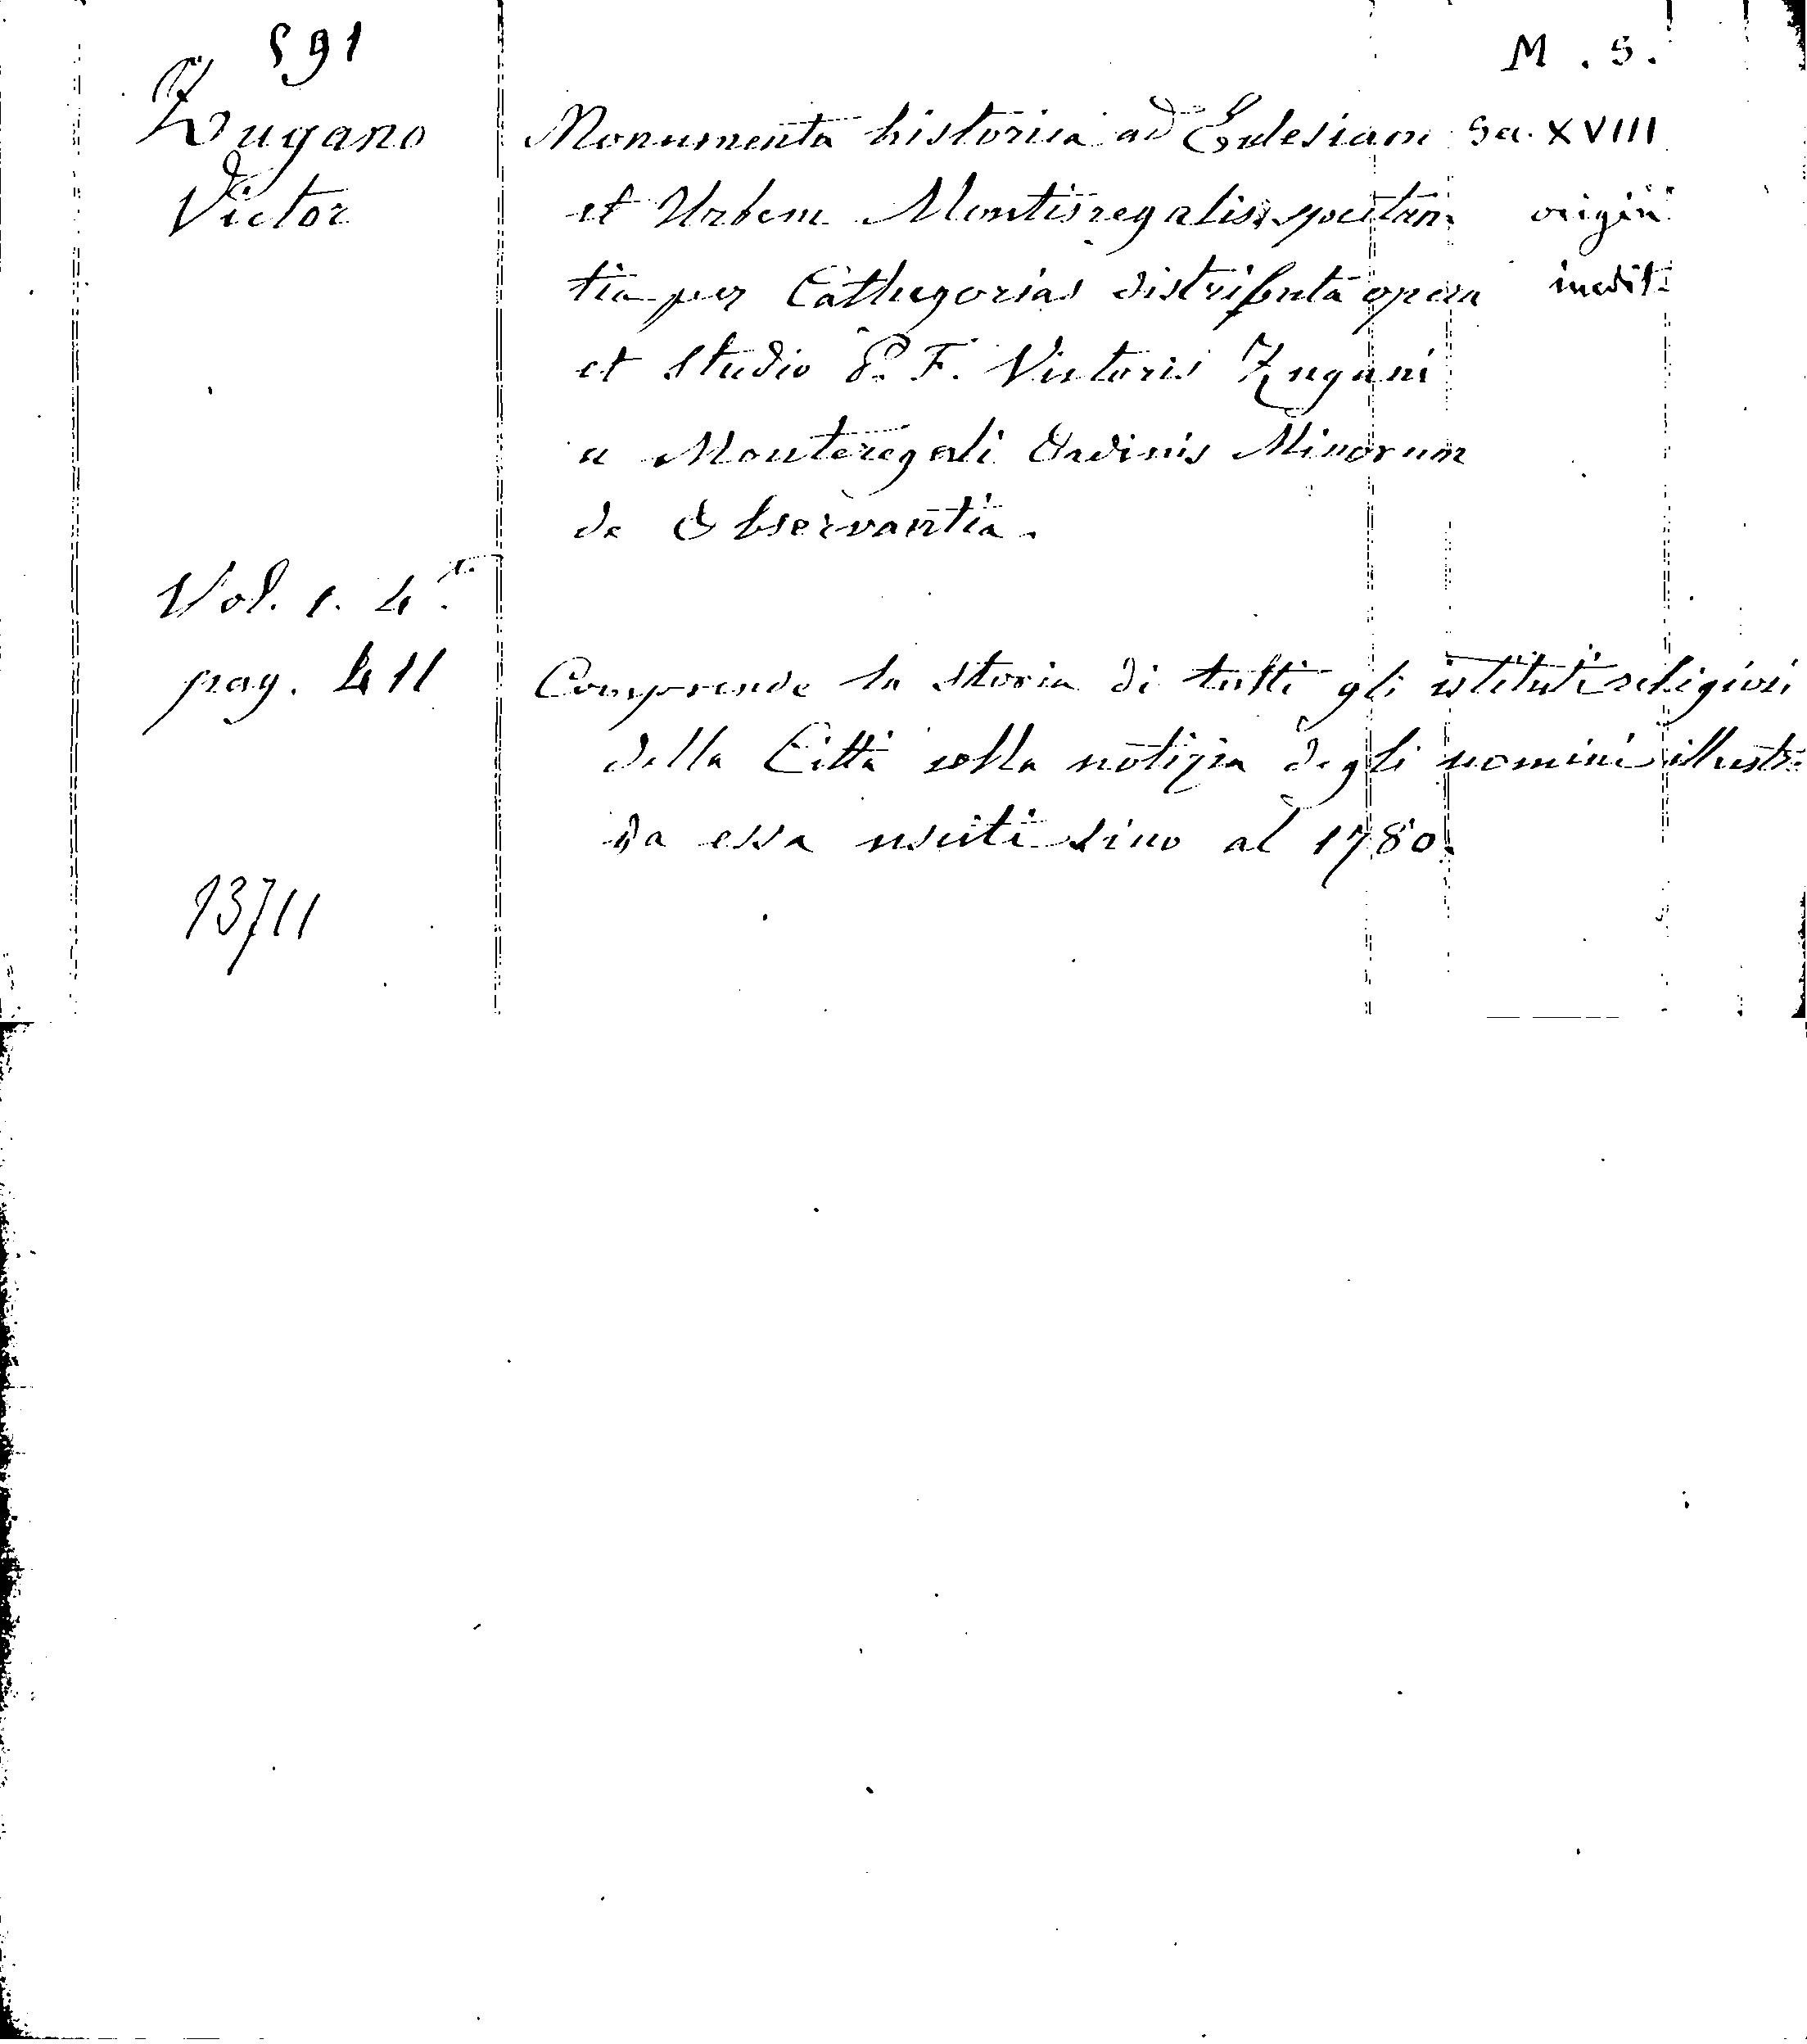 591
M. S.
Zugano
Victor
Monumenta historica ad Eclesiam
Sec. XVIII
et Urbem Montisregalis spectan
origin.
tia per Cathegorias distributa opera
inedit.
et studio P. F. Victoris Zugani
a Monteregali Ordinis Minorum
de Observantia.
Vol. 1. 4°.
pag. 411
Comprende la storia di tutti gli istituti religiosi
della Città colla notizia degli uomini illustri
da essa usciti sino al 1780.
13711